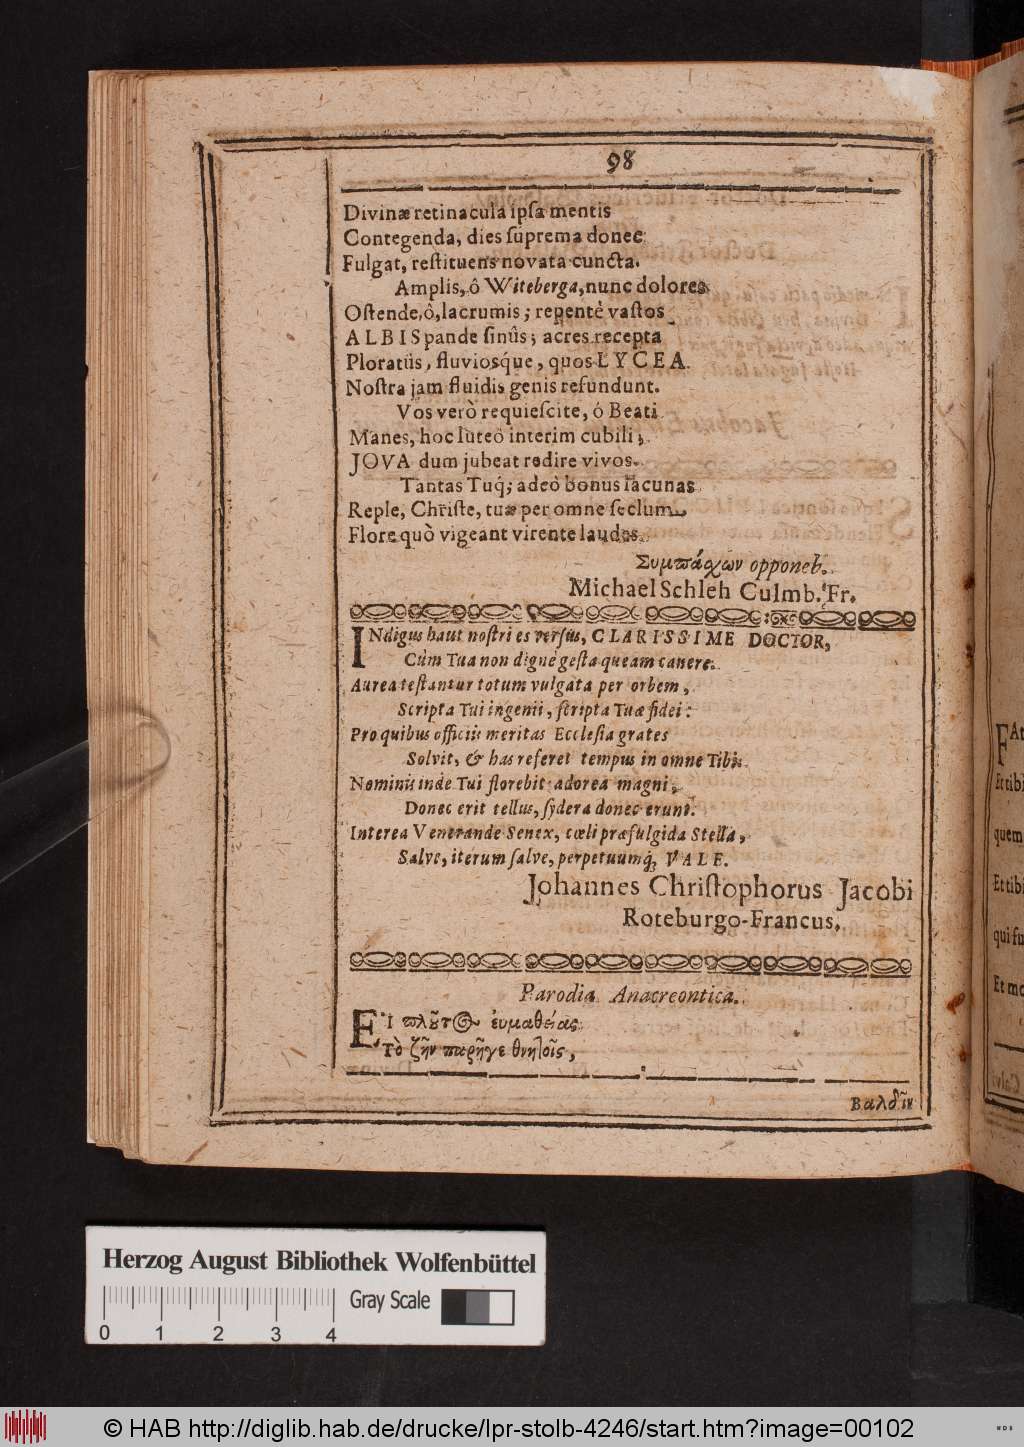 98
Divinæ retinacula ipſa mentis
Contegenda, dies ſuprema donec
Fulgat, reſtituens novata cuncta.
Amplis, ô Witeberga, nunc dolores
Oſtende, ô, lacrumis; repentè vaſtos
ALBIS pande ſinûs; acres recepta
Ploratûs, fluviosq́ue, quos LYCEA
Noſtra jam fluidis genis refundunt.
Vos verò requieſcite, ó Beati
Manes, hoc luteo interim cubili;
JOVA dum jubeat redire vivos.
Tantas Tuq́; adeò bonus lacunas
Reple, Chriſte, tuæ per omne ſeclum
Flore quò vigeant virente laudes.
Συμπάχων opponeb.
Michael Schleh Culmb. Fr.
INdigus haut noſtri es verſûs, CLARISSIME DOCTOR,
Cùm Tua non dignè geſta queam canere.
Aurea teſtantur totum vulgata per orbem,
Scripta Tui ingenii, ſcripta Tuæ fidei:
Pro quibus officiis meritas Eccleſia grates
Solvit, & has referet tempus in omne Tibi.
Nominis inde Tui florebit adorea magni,
Donec erit tellus, ſydera donec erunt.
Interea Venerande Senex, cœli præfulgida Stella,
Salve, iterum ſalve, perpetuumq́; VALE.
Johannes Chriſtophorus Jacobi
Roteburgo-Francus.
Parodia Anacreontica.
Εἰ πλοῦτος ἐυμαθείας
Τὸ ζῆν παρῆγε θνητοῖς,
Βαλδῖν
FAt
Et tibi
quem
Et tibi
qui fu
Et mo
Herzog August Bibliothek Wolfenbüttel
Gray Scale
0 1 2 3 4
© HAB http://diglib.hab.de/drucke/lpr-stolb-4246/start.htm?image=00102